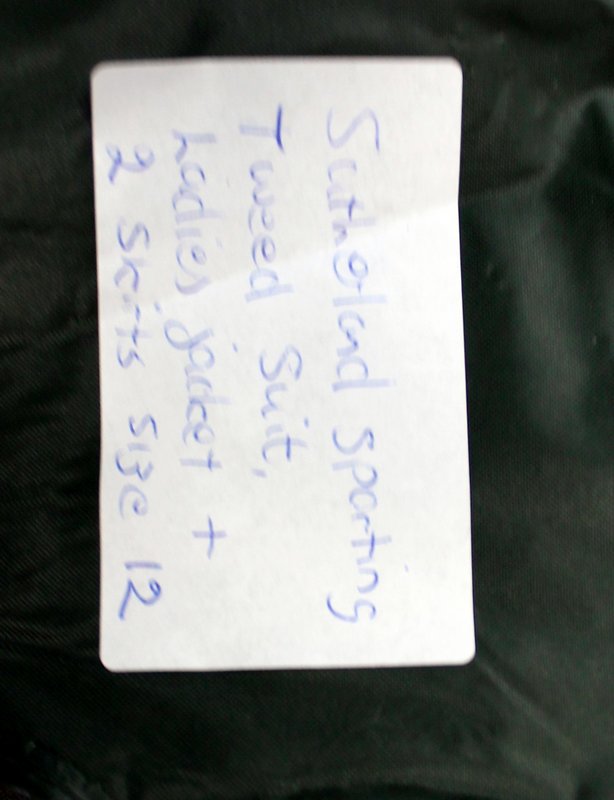 Sutherland sporting
Tweed Suit,
Ladies jacket +
2 Skirts size 12